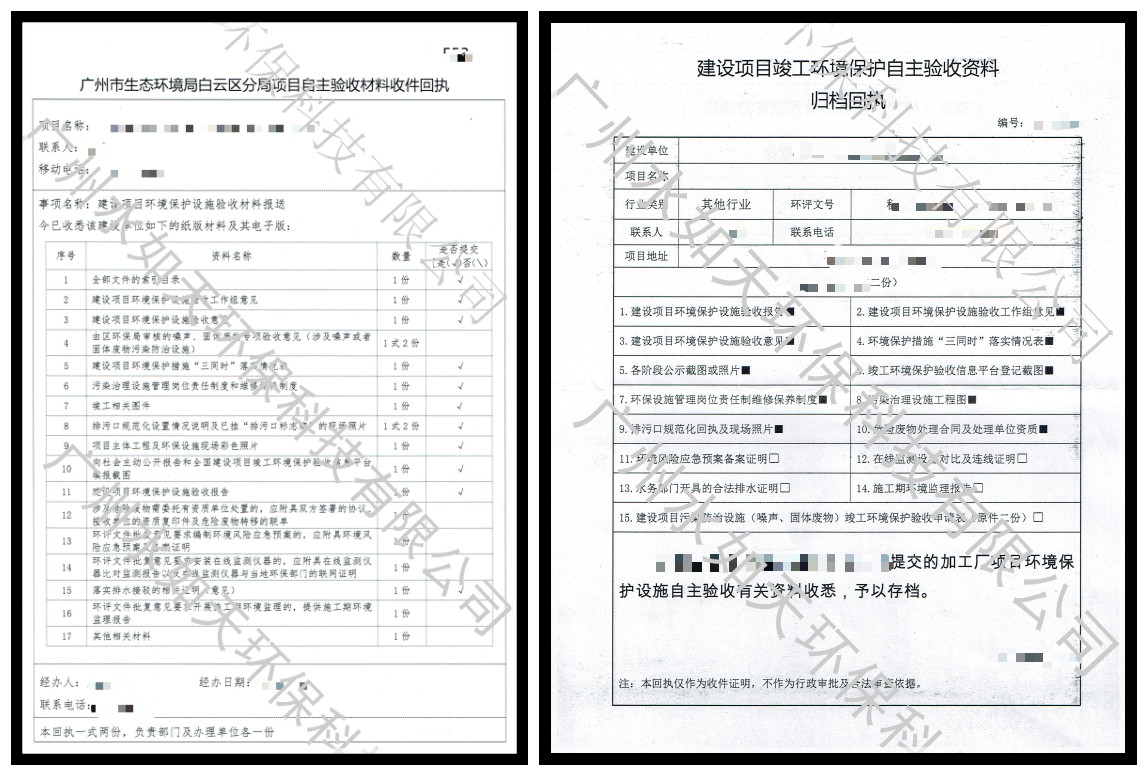 广州市生态环境局白云区分局项目自主验收材料收件回执
项目名称：
联系人：
移动电话：
事项名称：建设项目环境保护设施验收材料报送
今已收悉该建设单位如下的纸版材料及其电子版：
序号 资料名称 数量 是否提交
[是(√)否(\)]
1 全部文件的索引目录 1份 √
2 建设项目环境保护设施验收工作组意见 1份 √
3 建设项目环境保护设施验收意见 1份 √
4 由区环保局审核的噪声、固体废物专项验收意见（涉及噪声或者
固体废物污染防治设施） 1式2份
5 建设项目环境保护措施“三同时”落实情况表 1份 √
6 污染治理设施管理岗位责任制度和维修保养制度 1份 √
7 竣工相关图件 1份 √
8 排污口规范化设置情况说明及已挂“排污口标志牌”的现场照片 1式2份 √
9 项目主体工程及环保设施现场彩色照片 1份 √
10 向社会主动公开报告和全国建设项目竣工环境保护验收信息平台
填报截图 1份 √
11 建设项目环境保护设施验收报告 1份 √
12 涉及危险废物需委托有资质单位处置的，应附具双方签署的协议、
接收单位的资质复印件及危险废物转移的联单 1份
13 环评文件批复意见要求编制环境风险应急预案的，应附具环境风
险应急预案及备案证明 1份
14 环评文件批复意见要求安装在线监测仪器的，应附具在线监测仪
器比对监测报告以及在线监测仪器与当地环保部门的联网证明 1份
15 落实排水接驳的相关证明（意见） 1份 √
16 环评文件批复意见要求开展施工期环境监理的，提供施工期环境
监理报告 1份
17 其他相关材料 1份
经办人： 经办日期：
联系电话：
本回执一式两份，负责部门及办理单位各一份
建设项目竣工环境保护自主验收资料
归档回执
编号：
建设单位
项目名称
行业类别 其他行业 环评文号
联系人 联系电话
项目地址
二份）
1.建设项目环境保护设施验收报告■ 2.建设项目环境保护设施验收工作组意见■
3.建设项目环境保护设施验收意见■ 4.环境保护措施“三同时”落实情况表■
5.各阶段公示截图或照片■ 6.竣工环境保护验收信息平台登记截图■
7.环保设施管理岗位责任制维修保养制度■ 8.污染治理设施工程图■
9.排污口规范化回执及现场照片■ 10.危险废物处理合同及处理单位资质■
11.环境风险应急预案备案证明□ 12.在线监测设备对比及连线证明□
13.水务部门开具的合法排水证明□ 14.施工期环境监理报告□
15.建设项目污染防治设施（噪声、固体废物）竣工环境保护验收申请表（原件二份）□
提交的加工厂项目环境保
护设施自主验收有关资料收悉，予以存档。
注：本回执仅作为收件证明，不作为行政审批及合法审查依据。
广州水如天环保科技有限公司
广州水如天环保科技有限公司
广州水如天环保科技有限公司
广州水如天环保科